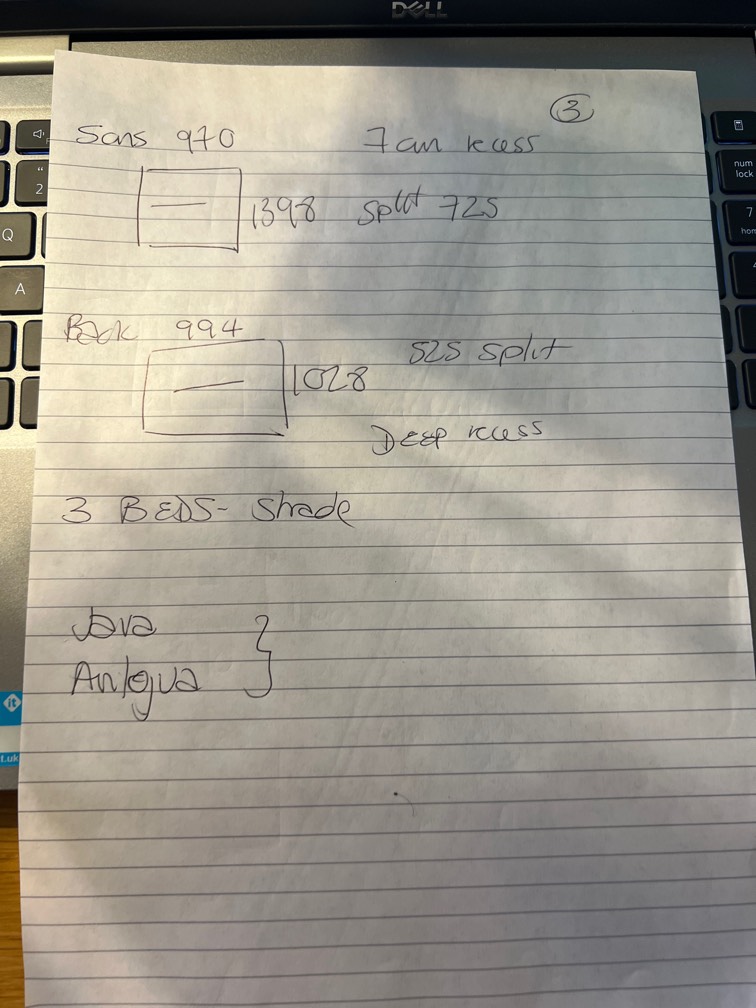 DELL
3
Sons 970 7 cm recess
1398 split 725
Back 994
525 split
1028
DEEP recess
3 BEDS- Shade
Java
Antgua
2
Q
A
num
lock
7
it
t.uk